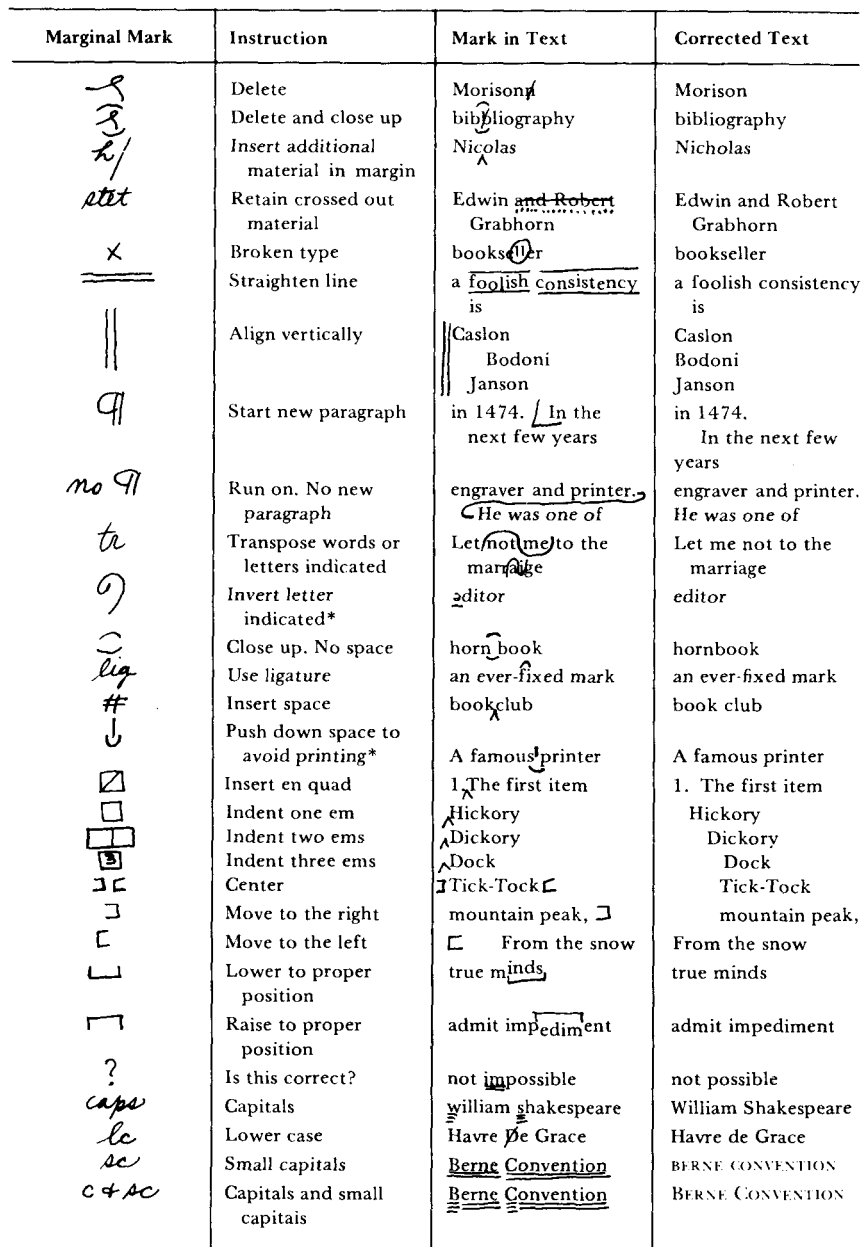 Marginal Mark Instruction Mark in Text Corrected Text
Delete Morisonn Morison
Delete and close up bibbliography bibliography
h/ Insert additional Nicolas Nicholas
material in margin
stet Retain crossed out Edwin and Robert Edwin and Robert
material Grabhorn Grabhorn
X Broken type bookseller bookseller
Straighten line a foolish consistency a foolish consistency
is is
Align vertically Caslon Caslon
Bodoni Bodoni
Janson Janson
¶ Start new paragraph in 1474. In the in 1474.
next few years In the next few
years
no ¶ Run on. No new engraver and printer. engraver and printer.
paragraph He was one of He was one of
tr Transpose words or Let not me to the Let me not to the
letters indicated marraige marriage
Invert letter ǝditor editor
indicated*
Close up. No space horn book hornbook
lig Use ligature an ever-fixed mark an ever-fixed mark
# Insert space bookclub book club
Push down space to
avoid printing* A famous printer A famous printer
Insert en quad 1.The first item 1. The first item
Indent one em Hickory Hickory
Indent two ems Dickory Dickory
3 Indent three ems Dock Dock
Center Tick-Tock Tick-Tock
Move to the right mountain peak, mountain peak,
Move to the left From the snow From the snow
Lower to proper true minds true minds
position
Raise to proper admit impediment admit impediment
position
? Is this correct? not impossible not possible
caps Capitals william shakespeare William Shakespeare
lc Lower case Havre De Grace Havre de Grace
sc Small capitals Berne Convention BERNE CONVENTION
c & sc Capitals and small Berne Convention BERNE CONVENTION
capitais